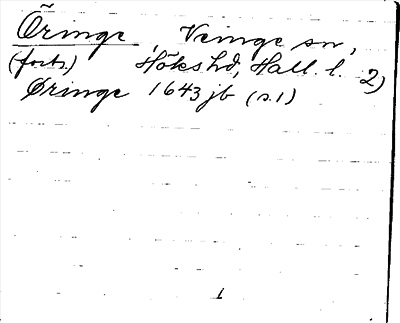 Öringe, Veinge sn,
(forts.) Höks hd, Hall. l. 2)
Øringe 1643 jb (s. 1)
1